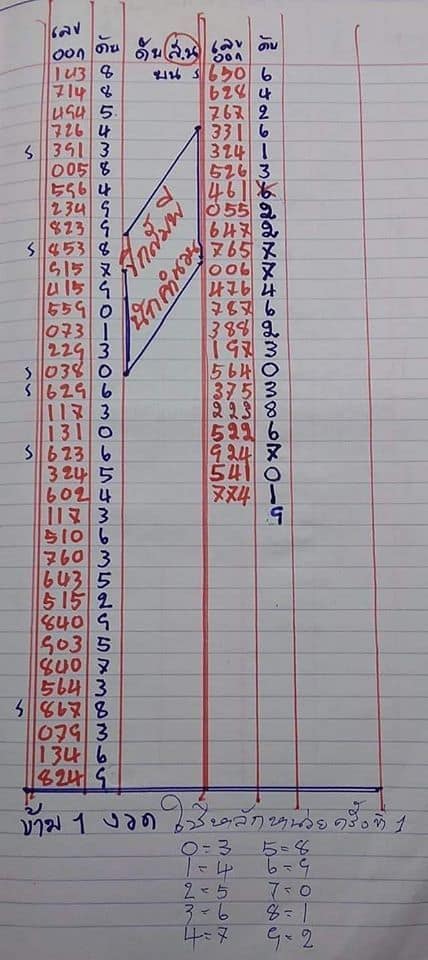 เลข ออก ดับ ดับ ส.น บน เลข ออก ดับ
143 8 s 650 6
714 8 628 4
494 5 767 2
726 4 331 6
s 391 3 324 1
005 8 526 3
596 4 461 6
234 9 055 2
823 9 647 2
s 853 8 765 7
915 7 006 7
415 9 476 4
559 0 787 6
073 1 388 2
229 3 197 3
s 038 0 564 0
s 629 6 375 3
117 3 223 8
131 0 522 6
s 623 6 924 7
324 5 541 0
602 4 774 1
117 3 9
510 6
760 3
643 5
515 2
840 9
903 5
840 7
564 3
s 867 8
079 3
134 6
824 9
นักคำนวน
ข้าม 1 งวด ใช้หลักหน่วยครั้งที่ 1
0=3 5=8
1=4 6=9
2=5 7=0
3=6 8=1
4=7 9=2